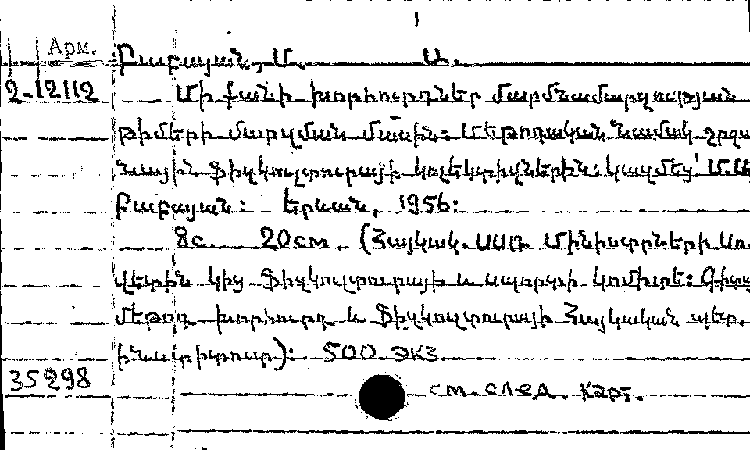 Арм.
Բաբայան, Մ. Ա.
2-12112 Մի քանի խորհուրդներ մարմնամարզության
թիմերի մարզման մասին: Մեթոդական նամակ շրջա
նային ֆիզկուլտուրայի կոլեկտիվներին: Կազմեց՝ Մ.Ա.
Բաբայան: Երևան, 1956:
8с. 20см. (Հայկակ. ՍՍՌ Մինիստրների Սո
վետին կից ֆիզկուլտուրայի և սպորտի կոմիտե: Գիտ
մեթոդ խորհուրդ և Ֆիզկուլտուրայի Հայկական պետ.
ինստիտուտ): 500 экз.
35298
см. след. карт.